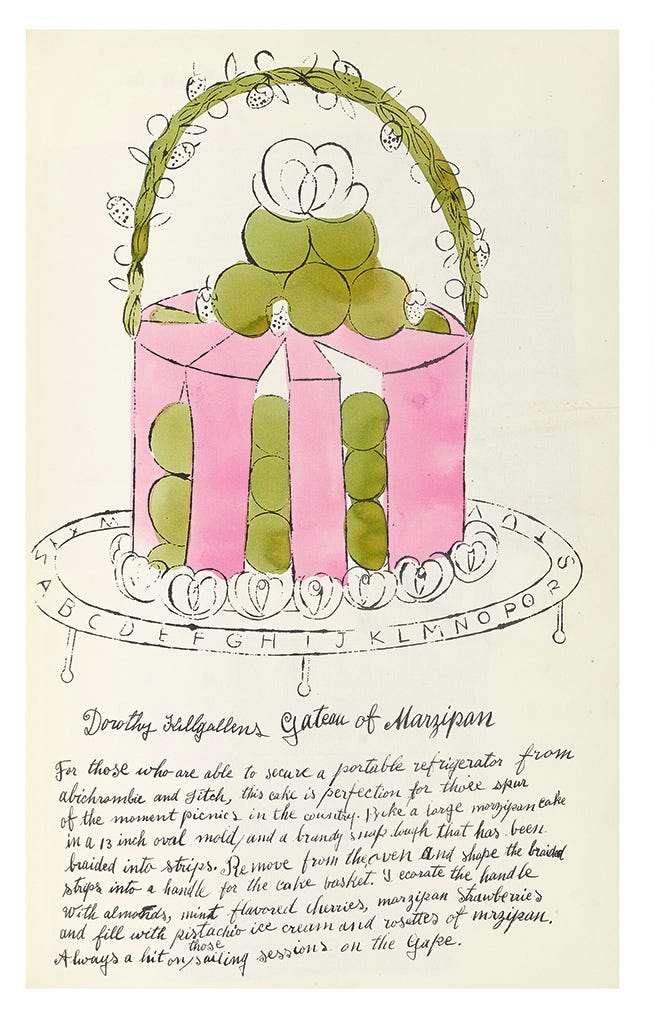 A B C D E F G H I J K L M N O P Q R S T U
Dorothy Killgallens Gateau of Marzipan
For those who are able to secure a portable refrigerator from
abichrombie and Fitch, this cake is perfection for those spur
of the moment picnics in the country. Bake a large marzipan cake
in a 13 inch oval mold, and a brandy snap dough that has been
braided into strips. Remove from the oven and shape the braided
strips into a handle for the cake basket. Decorate the handle
with almonds, mint flavored cherries, marzipan strawberries
and fill with pistachio ice cream and rosettes of mrzipan.
Always a hit on those sailing sessions on the Cape.